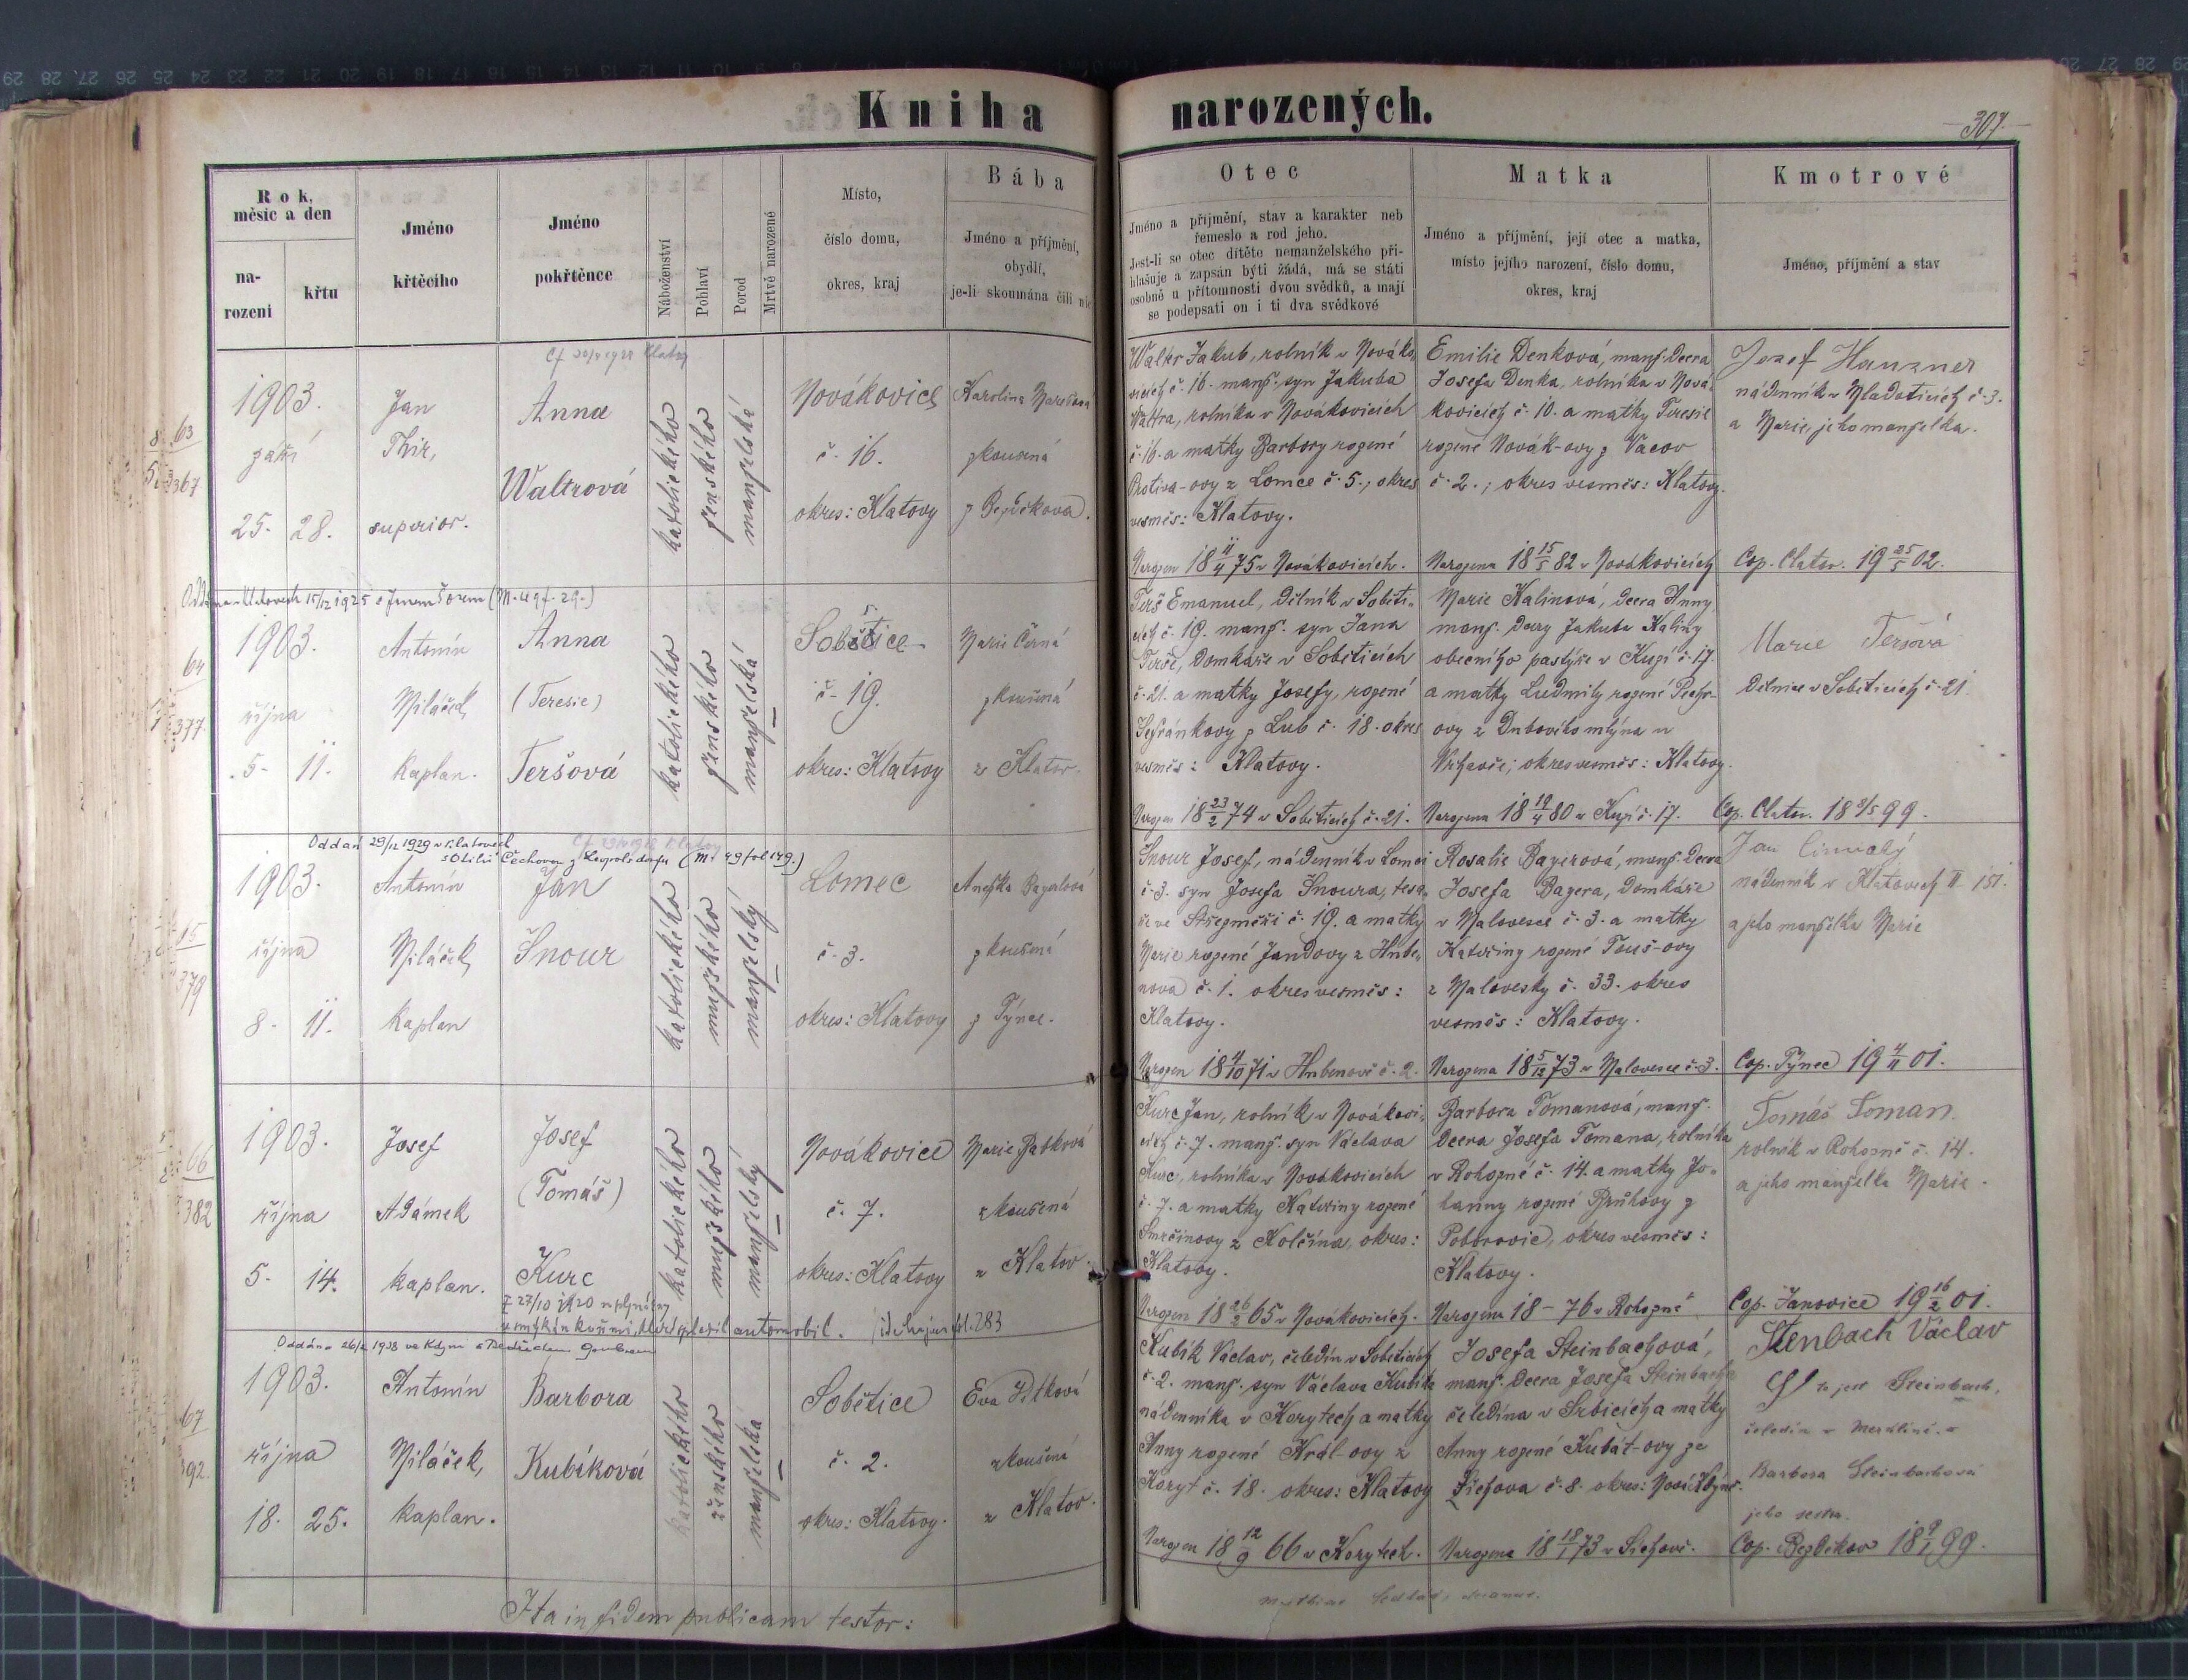 Kniha narozených.
307.
Rok, měsíc a den
na-
rození
křtu
Jméno
křtěcího
Jméno
pokřtěnce
Náboženství
Pohlaví
Porod
Mrtvě narozené
Místo,
číslo domu,
okres, kraj
Bába
Jméno a příjmění,
obydlí,
je-li skoumána čili nic
Otec
Jméno a příjmění, stav a karakter neb
řemeslo a rod jeho.
Jest-li se otec dítěte nemanželského při-
hlašuje a zapsán býti žádá, má se státi
osobně u přítomnosti dvou svědků, a mají
se podepsati on i ti dva svědkové
Matka
Jméno a příjmění, její otec a matka,
místo jejího narození, číslo domu,
okres, kraj
Kmotrové
Jméno, příjmění a stav
1903.
září
25. 28.
Jan
Thir,
superior.
Anna
Waltrová
katolického
ženského
manželská
Novákovice
č. 16.
okres: Klatovy
Karolina
zkoušená
z Bezděkova.
Walter Jakub, rolník v Nováko
vicích č. 16. manž. syn Jakuba
Waltra, rolníka v Novákovicích
č. 16. a matky Barbory rozené
Protiva-ovy z Lomce č. 5.; okres
vesměs: Klatovy.
Narozen 18 11/4 75 v Novákovicích.
Emilie Denková, manž. dcera
Josefa Denka, rolníka v Nová-
kovicích č. 10. a matky Teresie
rozené Novák-ovy z Vacov
č. 2.; okres vesměs: Klatovy.
Narozena 18 15/5 82 v Novákovicích
Josef Hauzner
nádenník v Mladoticích č. 3.
a Marie, jeho manželka.
Cop. Clatov. 19 25/5 02.
1903.
října
5. 11.
Antonín
Miláček,
kaplan.
Anna
(Teresie)
Teršová
katolického
ženského
manželská
Sobětice
č. 19.
okres: Klatovy
Marie Černá
zkoušená
z Klatov.
Terš Emanuel, dělník v Soběti-
cích č. 19. manž. syn Jana
Terše, domkáře v Soběticích
č. 21. a matky Josefy, rozené
Šefránkovy z Lub č. 18. okres
vesměs: Klatovy.
Narozen 18 23/2 74 v Soběticích č. 21.
Marie Kalinová, dcera Anny
manž. dcery Jakuba Kaliny
obecního pastýře v Kupí č. 17.
a matky Ludmily rozené
ovy z mlýna u
Vrhavče; okres vesměs: Klatovy.
Narozena 18 19/4 80 v Kupí č. 17.
Marie Teršová
Dělnice v Soběticích č. 21.
Cop. Clatov. 18 8/5 99.
Oddán 29/12 1929 v Klatovech
s Otilií Čechovou z Leopoldorfu (M. 49 fol 149.)
1903.
října
8. 11.
Antonín
Miláček,
kaplan
Jan
Šnour
katolického
mužského
manželský
Lomec
č. 3.
okres: Klatovy
Anežka Bayerlová
zkoušená
z Týnce.
Šnour Josef, nádenník v Lomci
č. 3. syn Josefa Šnoura, tesa-
ře ve Střezměři č. 19. a matky
Marie rozené Jandovy z Hnbe-
nova č. 1. okres vesměs:
Klatovy.
Narozen 18 4/10 71 v Hubenově č. 2.
Rosalie Bayerová, manž. dcera
Josefa Bayera, domkáře
v Malovesce č. 3. a matky
Kateřiny rozené Touš-ovy
z Malovesky č. 33. okres
vesměs: Klatovy.
Narozena 18 5/12 73 v Malovesce č. 3.
nádenník v Klatovech II - 151.
a jeho manželka Marie
Cop. Týnec 19 4/11 01.
1903.
října
5. 14.
Josef
Adámek
kaplan.
Josef
(Tomáš)
Kurc
katolického
mužského
manželský
Novákovice
č. 7.
okres: Klatovy
Marie
zkoušená
z Klatov.
Kurc Jan, rolník v Novákovi-
cích č. 7. manž. syn Václava
Kurc, rolníka v Novákovicích
č. 7. a matky Kateřiny rozené
Smrčinovy z Kolčína, okres:
Klatovy.
Narozen 18 26/2 65 v Novákovicích.
Barbora Tomanová, manž.
dcera Josefa Tomana, rolníka
v Rohozné č. 14. a matky Jo-
hanny rozené Brůhovy z
Poborovic, okres vesměs:
Klatovy.
Narozena 18 - 76 v Rohozně
Tomáš Toman.
rolník v Rohozně č. 14.
a jeho manželka Marie.
Cop. Janovice 19 16/2 01.
1903.
října
18. 25.
Antonín
Miláček,
kaplan.
Barbora
Kubíková
katolického
ženského
manželská
Sobětice
č. 2.
okres: Klatovy.
Eva
zkoušená
z Klatov.
Kubík Václav, čeledín v Soběticích
č. 2. manž. syn Václava Kubíka
nádenníka v Korytech a matky
Anny rozené Král-ovy z
Koryt č. 18. okres: Klatovy
Narozen 18 12/9 66 v Korytech.
Josefa Steinbachová,
manž. dcera Josefa Steinbacha
čeledína v Srbicích a matky
Anny rozené Kubát-ovy ze
Šichova č. 8. okres: Nová Kdyně.
Narozena 18 18/1 73 v Šichově.
Stenbach Václav
to jest Steinbach,
čeledín v Merklíně a
Barbora Steinbachová
jeho sestra.
Cop. Bezděkov 18 9/1 99.
Ita in fidem publicam testor: